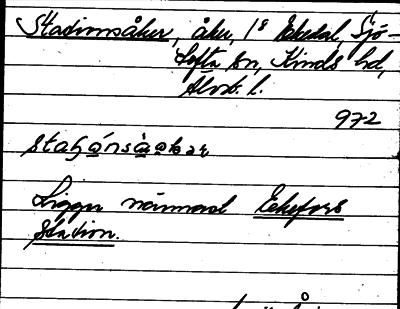 Stadionsåker, åker, 1⁸ Ekedal, Sjö-
tofta sn, Kinds hd,
Älvsb. l.
972
Ligger närmast Ekefors
Station.